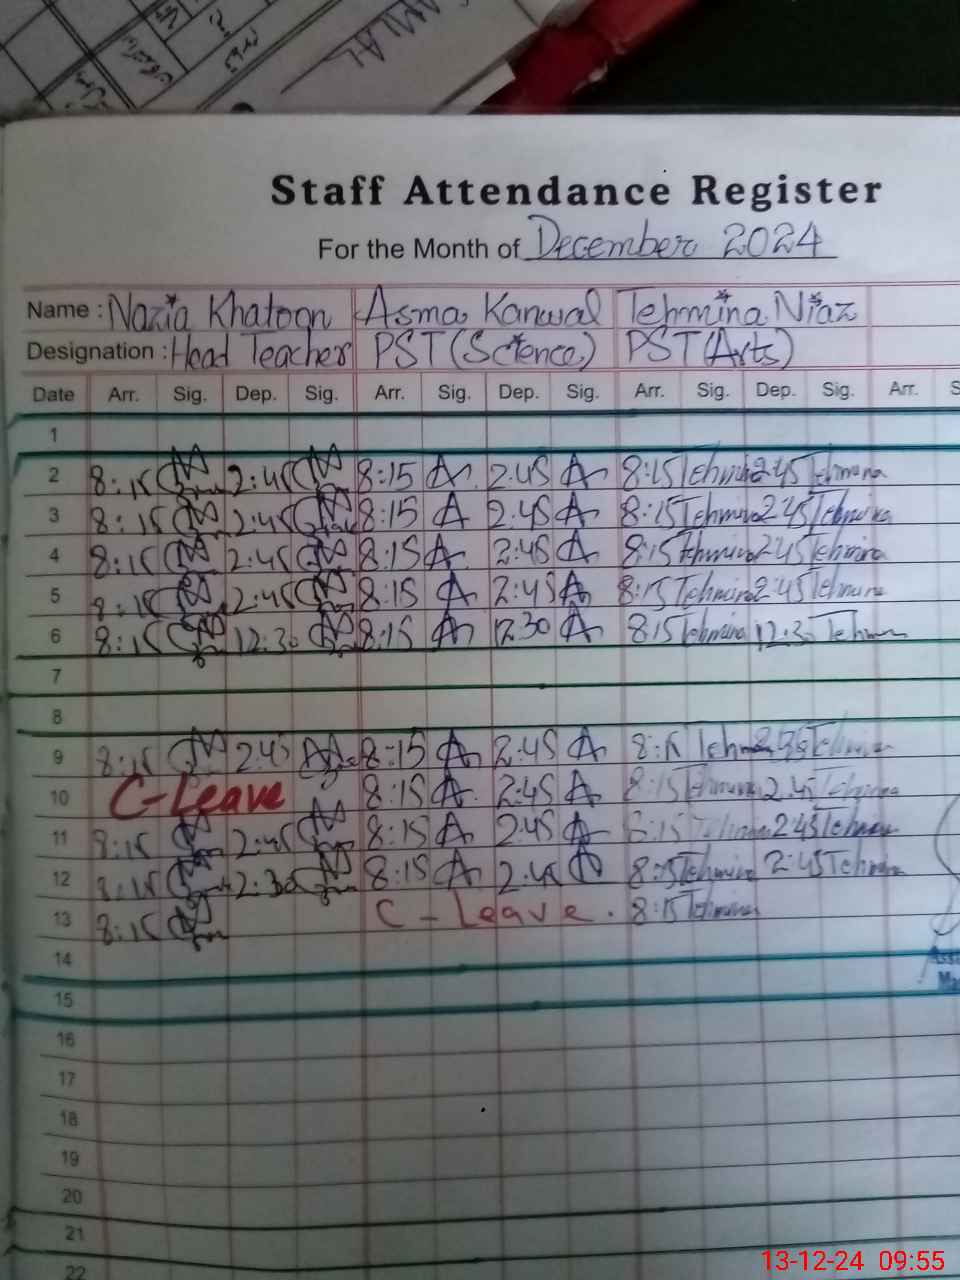 Staff Attendance Register
For the Month of December 2024
Name : Nazia Khatoon Asma Kanwal Tehmina Niaz
Designation : Head Teacher PST (Science) PST (Arts)
Date Arr. Sig. Dep. Sig. Arr. Sig. Dep. Sig. Arr. Sig. Dep. Sig. Arr.
1
2 8:15 2:45 8:15 A 2:45 A 8:15 Tehmina 2:45 Tehmina
3 8:15 2:45 8:15 A 2:45 A 8:15 Tehmina 2:45 Tehmina
4 8:15 2:45 8:15 A 2:45 A 8:15 Tehmina 2:45 Tehmina
5 8:15 2:45 8:15 A 2:45 A 8:15 Tehmina 2:45 Tehmina
6 8:15 12:30 8:15 A 12:30 A 8:15 Tehmina 12:30 Tehmina
7
8
9 8:15 2:45 8:15 A 2:45 A 8:15 Tehmina Tehmina
10 C-Leave 8:15 A 2:45 A 8:15 Tehmina 2:45 Tehmina
11 8:15 2:45 8:15 A 2:45 A 8:15 Tehmina 2:45 Tehmina
12 8:15 2:30 8:15 A 2:45 A 8:15 Tehmina 2:45 Tehmina
13 8:15 C - Leave . 8:15 Tehmina
14
15
16
17
18
19
20
21
22
13-12-24 09:55